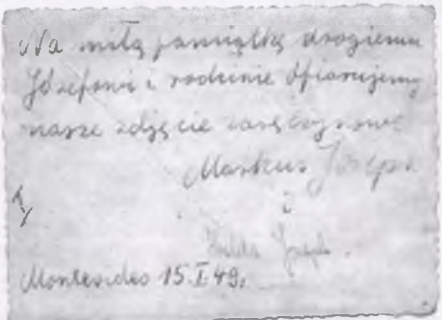 Na miłą pamiątkę drogiemu
Józefowi i rodzinie ofiarujemy
nasze zdjęcie zaręczynowe
Markus Joseph
i
Montevideo 15.I.49.